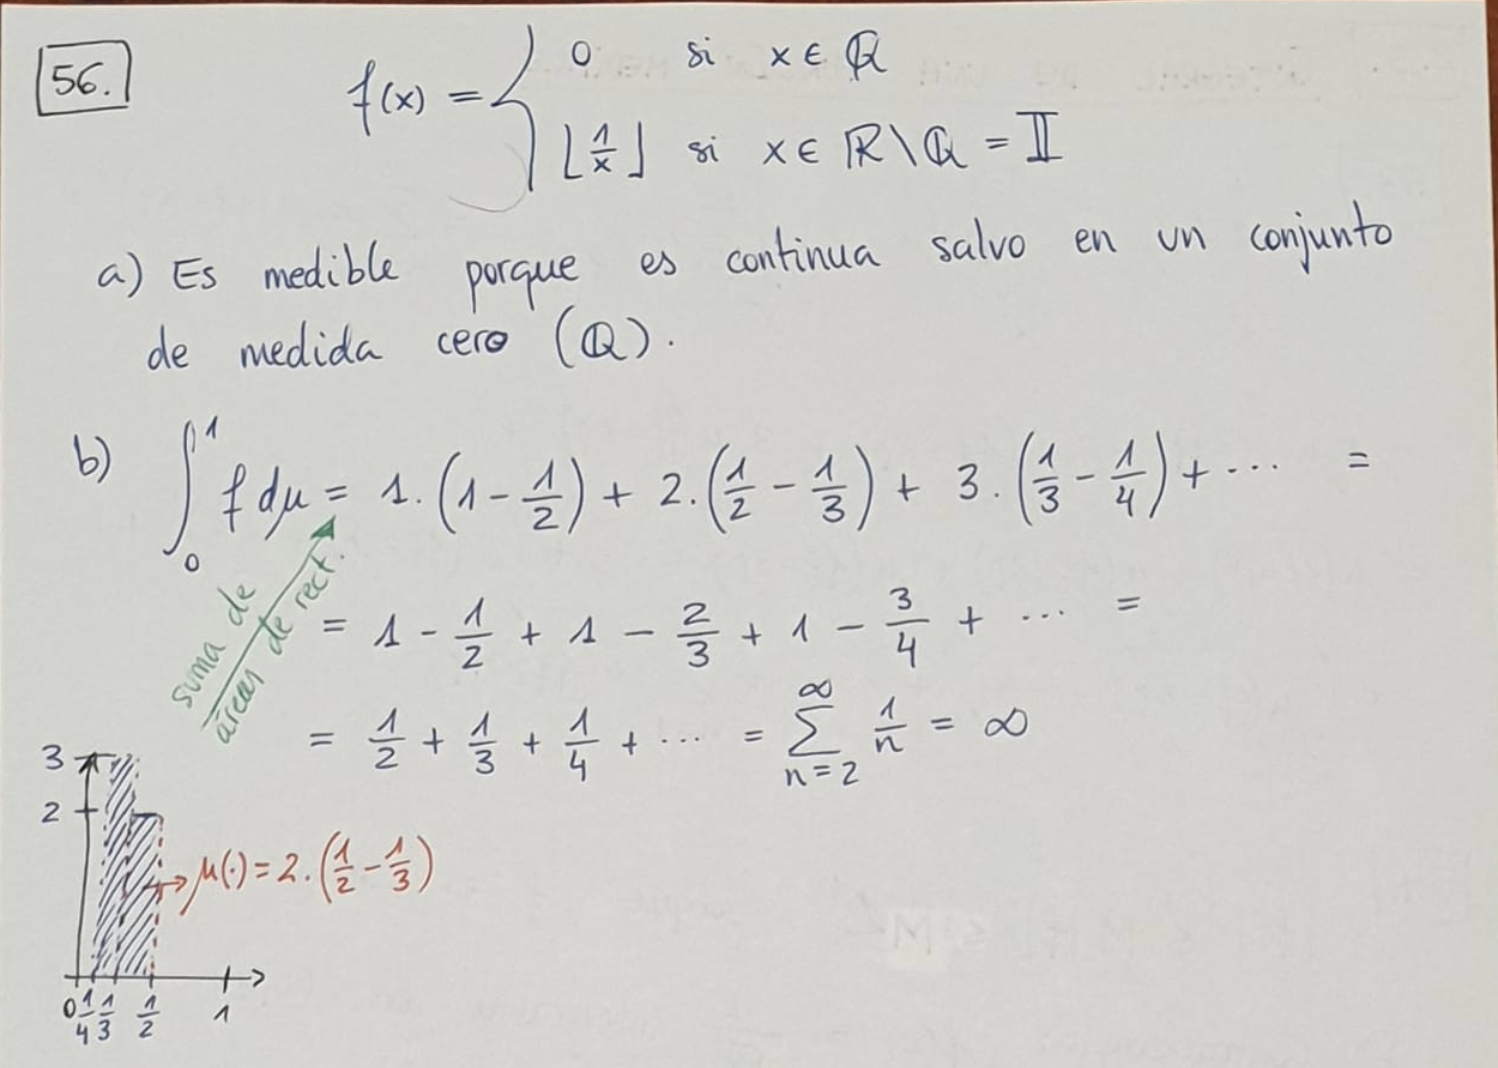 56.
f(x) = { 0 si x ∈ ℚ
⌊1/x⌋ si x ∈ ℝ\ℚ = 𝕀
a) Es medible porque es continua salvo en un conjunto
de medida cero (ℚ).
b) ∫₀¹ f dμ = 1·(1 - 1/2) + 2·(1/2 - 1/3) + 3·(1/3 - 1/4) + ··· =
suma de
áreas de rect.
= 1 - 1/2 + 1 - 2/3 + 1 - 3/4 + ··· =
= 1/2 + 1/3 + 1/4 + ··· = ∑_{n=2}^{∞} 1/n = ∞
3
2
→ μ(·) = 2·(1/2 - 1/3)
0 1/4 1/3 1/2 1